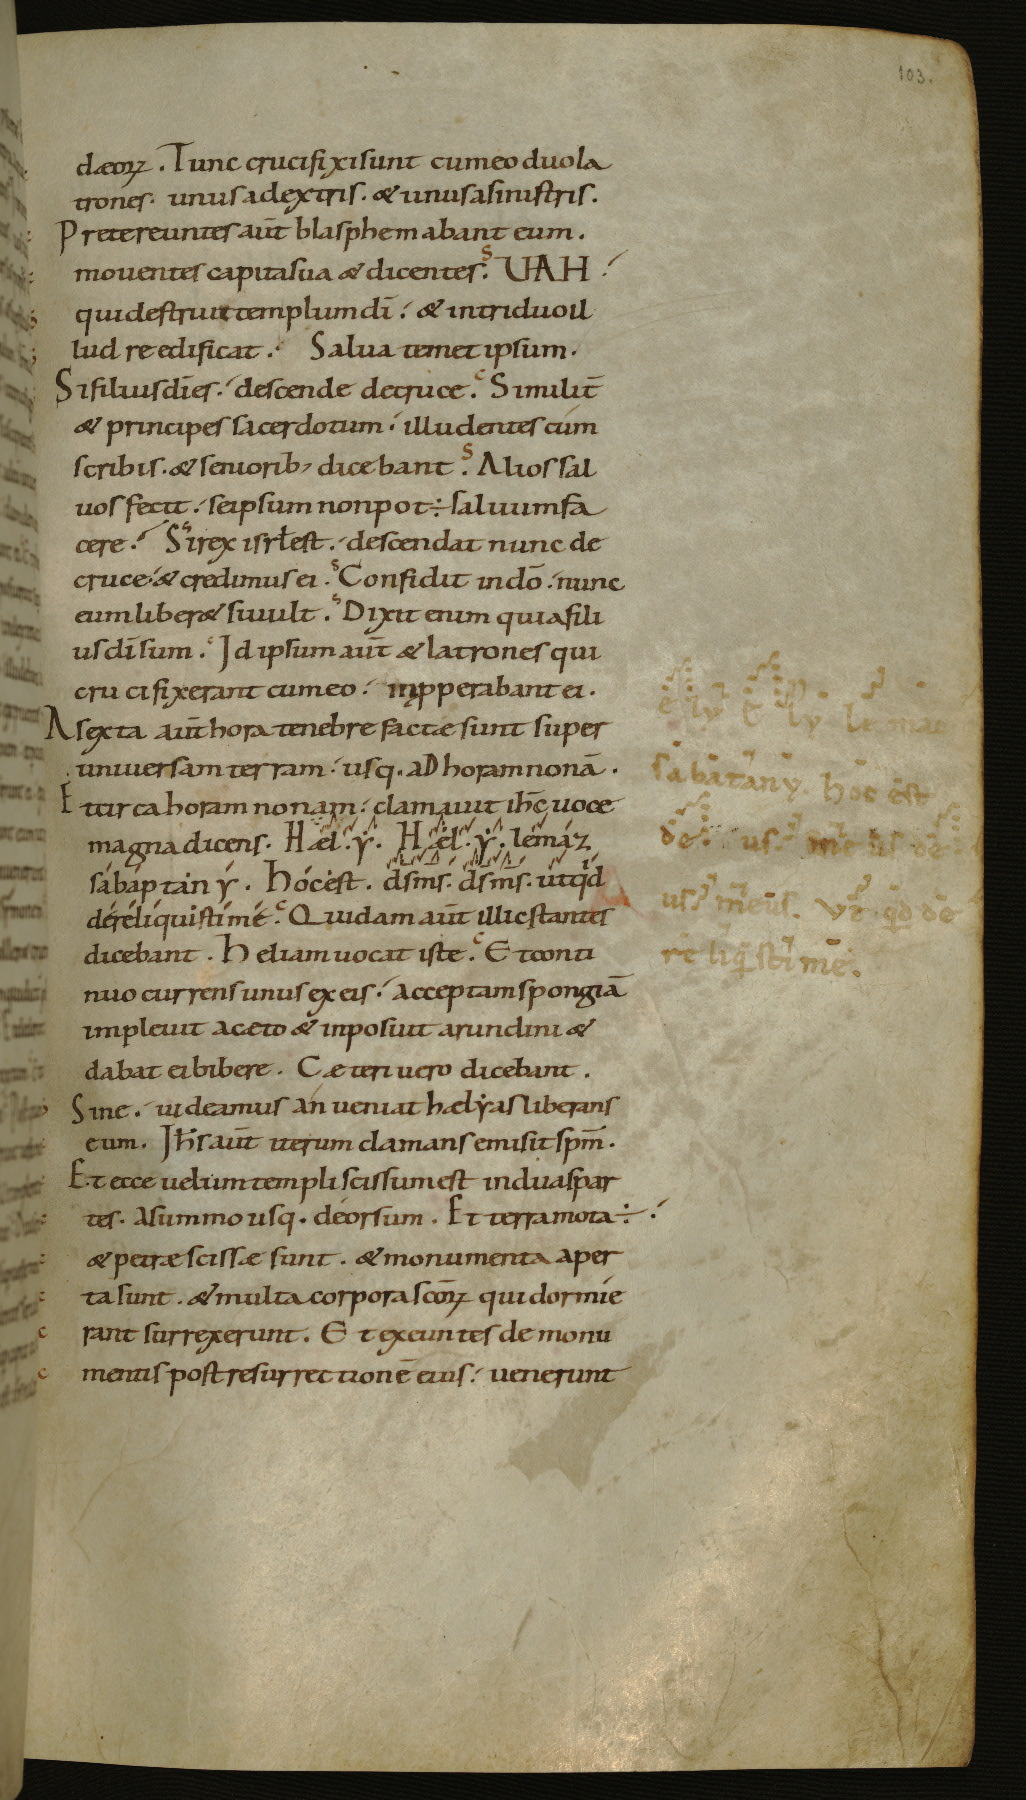 103.
dæoꝝ. Tunc crucifixi sunt cum eo duo la
trones. unus a dextris. & unus a sinistris.
Pretereuntes aut̄ blasphemabant eum.
mouentes capita sua & dicentes. UAH
qui destruit templum dī. & in triduo il
lud reedificat. Salua temet ipsum.
Si filius dī es. descende de cruce. Similit̄
& principes sacerdotum. illudentes cum
scribis. & seniorib; dicebant. Alios sal
uos fecit. seipsum non pot÷ saluum fa
cere. Si rex isrł est. descendat nunc de
cruce. & credimus ei. Confidit in dō. nunc
eum liber& si uult. Dixit enim quia fili
us dī sum. Id ipsum aut̄ & latrones qui
crucifixerant cum eo. inpperabant ei.
A sexta aut̄ hora tenebre factæ sunt super
uniuersam terram. usq. aD horam nonā.
Et circa horam nonam. clamauit ihc̄ uoce
magna dicens. Hæl.ẏ. Hæl.ẏ. lemaz
sabaptani ẏ. Hoc est. ds̄ ms̄. ds̄ ms̄. ut qd
dereliquisti me. Quidam aut̄ illic stantes
dicebant. Heliam uocat iste. Et conti
nuo currens unus ex eis. acceptam spongiā
impleuit aceto & inposuit arundini &
dabat ei bibere. Cæteri uero dicebant.
Sine. uideamus an ueniat hælẏas liberans
eum. Ihs̄ aut̄ iterum clamans emisit spm̄.
Et ecce uelum templi scissum est in duas par
tes. a summo usq. deorsum. Et terra mota÷.
& petræ scissæ sunt. & monumenta aper
ta sunt. & multa corpora scōꝝ qui dormie
rant surrexerunt. Et exeuntes de monu
mentis post resurrectionē eius. uenerunt
e ly e ly le ma
sabatany. hoc est
de us me us de
us meus. vt qd de
re liq̄sti me.